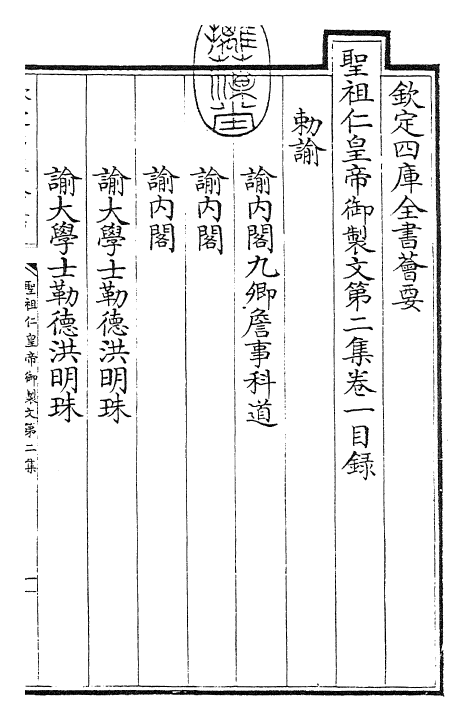 欽定四庫全書薈要
聖祖仁皇帝御製文第二集卷一目録
勅諭
諭内閣九卿詹事科道
諭内閣
諭内閣
諭大學士勒德洪明珠
諭大學士勒德洪明珠
聖祖仁皇帝御製文第二集
一